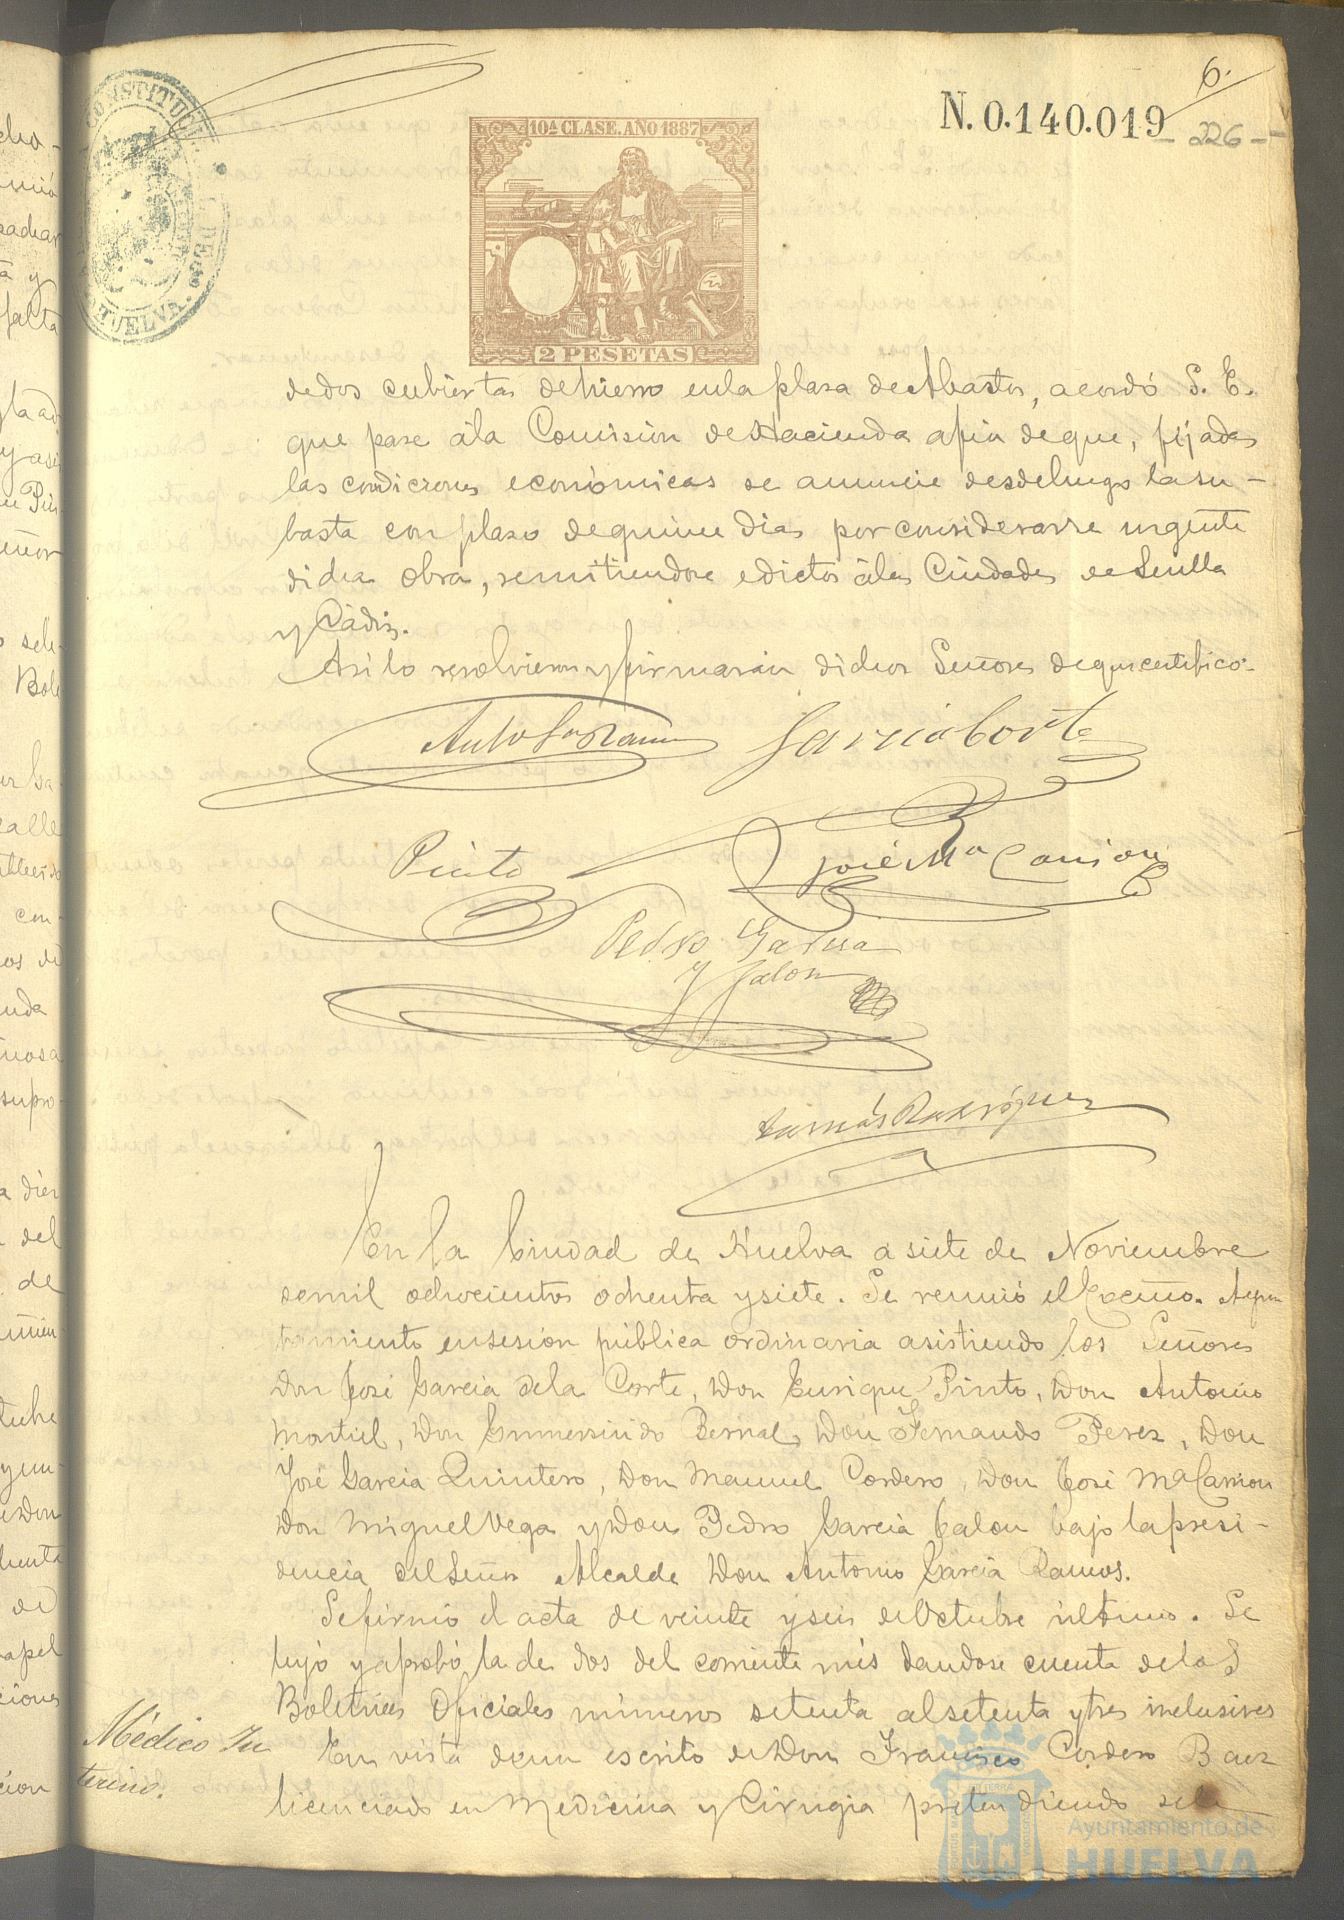 6.
N. 0.140.019
- 226 -
CONSTITUC
HUELVA.
10ª CLASE. AÑO 1887
2 PESETAS
de dos cubiertas de hierro en la plaza de Abastos, acordó S. E.
que pase á la Comision de Hacienda a fin de que, fijadas
las condiciones económicas se anuncie desde luego la su-
basta con plazo de quince dias por considerarse urgente
dicha obra, remitiendose edictos á las Ciudades de Sevilla
y Cádiz.
Asi lo resolvieron y firmarán dichos Señores de que certifico.
Antº Gª Ramos
Garcia Corte
Pinto
José Mª Carrion
Pedro Garcia
y Jalon
Tomás Rodríguez
En la Ciudad de Huelva a siete de Noviembre
de mil ochocientos ochenta y siete. Se reunió el Excmo. Ayun
tamiento en sesion pública ordinaria asistiendo los Señores
Don José Garcia de la Corte, Don Enrique Pinto, Don Antonio
Montiel, Don Gumersindo Bernal, Don Fernando Perez, Don
José Garcia Quintero, Don Manuel Cordero, Don José Mª Carrion
Don Miguel Vega y Don Pedro Garcia Jalon bajo la presi-
dencia del Señor Alcalde Don Antonio Garcia Ramos.
Se firmó el acta de veinte y seis de Octubre último. Se
leyó y aprobó la de dos del corriente mes dandose cuenta de los
Boletines Oficiales números setenta al setenta y tres inclusives
Médico In
terino.
En vista de un escrito de Don Francisco Cordero Baez
licenciado en Medicina y Cirugia pretendiendo se le
Ayuntamiento de
HUELVA